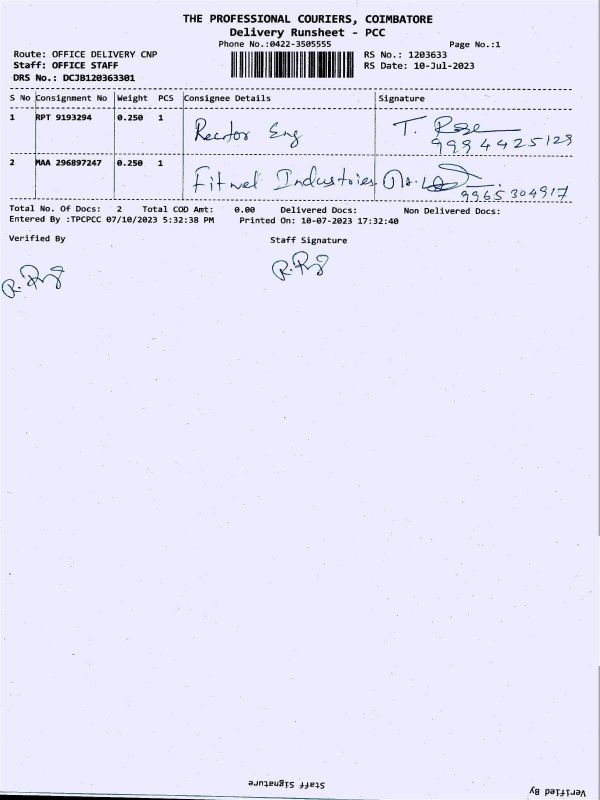 THE PROFESSIONAL COURIERS, COIMBATORE
Delivery Runsheet - PCC
Phone No.:0422-3505555 Page No.:1
Route: OFFICE DELIVERY CNP RS No.: 1203633
Staff: OFFICE STAFF RS Date: 10-Jul-2023
DRS No.: DCJB120363301
S No Consignment No Weight PCS Consignee Details Signature
1 RPT 9193294 0.250 1 Rector Eng T. Rose
9994425129
2 MAA 296897247 0.250 1 Fitwel Industries
9965304917
Total No. Of Docs: 2 Total COD Amt: 0.00 Delivered Docs: Non Delivered Docs:
Entered By :TPCPCC 07/10/2023 5:32:38 PM Printed On: 10-07-2023 17:32:40
Verified By Staff Signature
Staff Signature Verified By